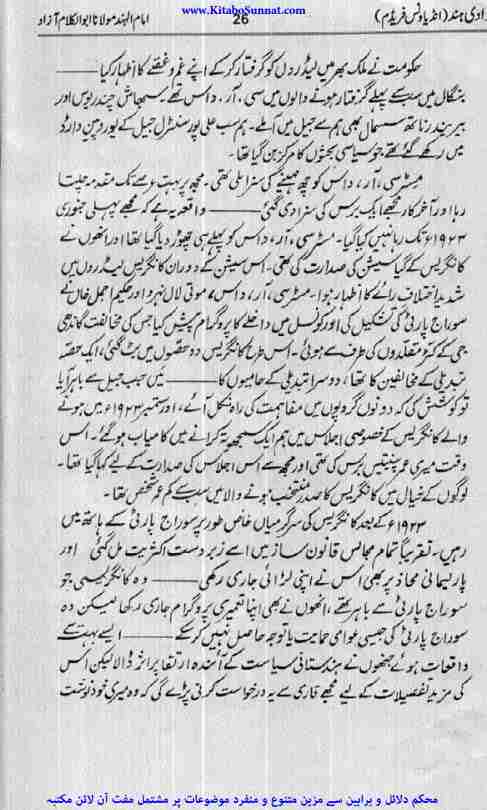 www.KitaboSunnat.com
دی ہند (انڈیا ونس فریڈم) 26 امام الہند مولانا ابوالکلام آزاد
حکومت نے ملک بھر میں لیڈروں کو گرفتار کرکے اپنے غم و غصّے کا اظہار کیا ———
بنگال میں سب سے پہلے گرفتار ہونے والوں میں سی، آر، داس تھے۔ سبھاش چندر بوس اور
بیریندر ناتھ سسمال بھی ہم سے جیل میں آملے۔ ہم سب علی پور سنٹرل جیل کے یورپین وارڈ
میں رکھے گئے تھے جو سیاسی بحثوں کا مرکز بن گیا تھا۔
مسٹر سی، آر، داس کو چھ مہینے کی سزا ملی تھی۔ مجھ پر بہت دنوں تک مقدمہ چلتا
رہا اور آخرکار مجھے ایک برس کی سزا دی گئی ——— واقعہ یہ ہے کہ مجھے پہلی جنوری
۱۹۲۳ء تک رہا نہیں کیا گیا۔ مسٹر سی، آر، داس کو پہلے ہی چھوڑ دیا گیا تھا اور انھوں نے
کانگریس کے گیا سیشن کی صدارت کی تھی۔ اس سیشن کے دوران کانگریس لیڈروں میں
شدید اختلافِ رائے کا اظہار ہوا۔ مسٹر سی، آر، داس، موتی لال نہرو اور حکیم اجمل خاں نے
سوراج پارٹی کی تشکیل کی اور کونسل میں داخلے کا پروگرام پیش کیا جس کی مخالفت گاندھی
جی کے کٹر مقلدوں کی طرف سے ہوئی۔ اس طرح کانگریس دو حصوں میں بٹ گئی، ایک حصّہ
تبدیلی کے مخالفین کا تھا، دوسرا تبدیلی کے حامیوں کا ——— میں جب جیل سے باہر آیا
تو کوشش کی کہ دونوں گروپوں میں مفاہمت کی راہ نکل آئے، اور ستمبر ۱۹۲۳ء میں ہونے
والے کانگریس کے خصوصی اجلاس میں ہم ایک سمجھوتہ کرانے میں کامیاب ہوگئے۔ اس
وقت میری عمر پینتیس برس کی تھی اور مجھ سے اس اجلاس کی صدارت کے لیے کہا گیا تھا۔
لوگوں کے خیال میں کانگریس کا صدر منتخب ہونے والا میں سب سے کم عمر شخص تھا۔
۱۹۲۳ء کے بعد کانگریس کی سرگرمیاں خاص طور پر سوراج پارٹی کے ہاتھ میں
رہیں۔ تقریباً تمام مجالس قانون ساز میں اسے زبردست اکثریت مل گئی اور
پارلیمانی محاذ پر بھی اس نے اپنی لڑائی جاری رکھی ——— وہ کانگریسی جو
سوراج پارٹی سے باہر تھے، انھوں نے بھی اپنا تعمیری پروگرام جاری رکھا لیکن وہ
سوراج پارٹی کی جیسی عوامی حمایت یا توجہ حاصل نہیں کرسکے ——— ایسے بہت سے
واقعات ہوئے جنھوں نے ہندستانی سیاست کے آئندہ ارتقا پر اثر ڈالا لیکن اس
کی مزید تفصیلات کے لیے مجھے قاری سے یہ درخواست کرنی پڑے گی کہ وہ میری خودنوشت
محکم دلائل و براہین سے مزین متنوع و منفرد موضوعات پر مشتمل مفت آن لائن مکتبہ